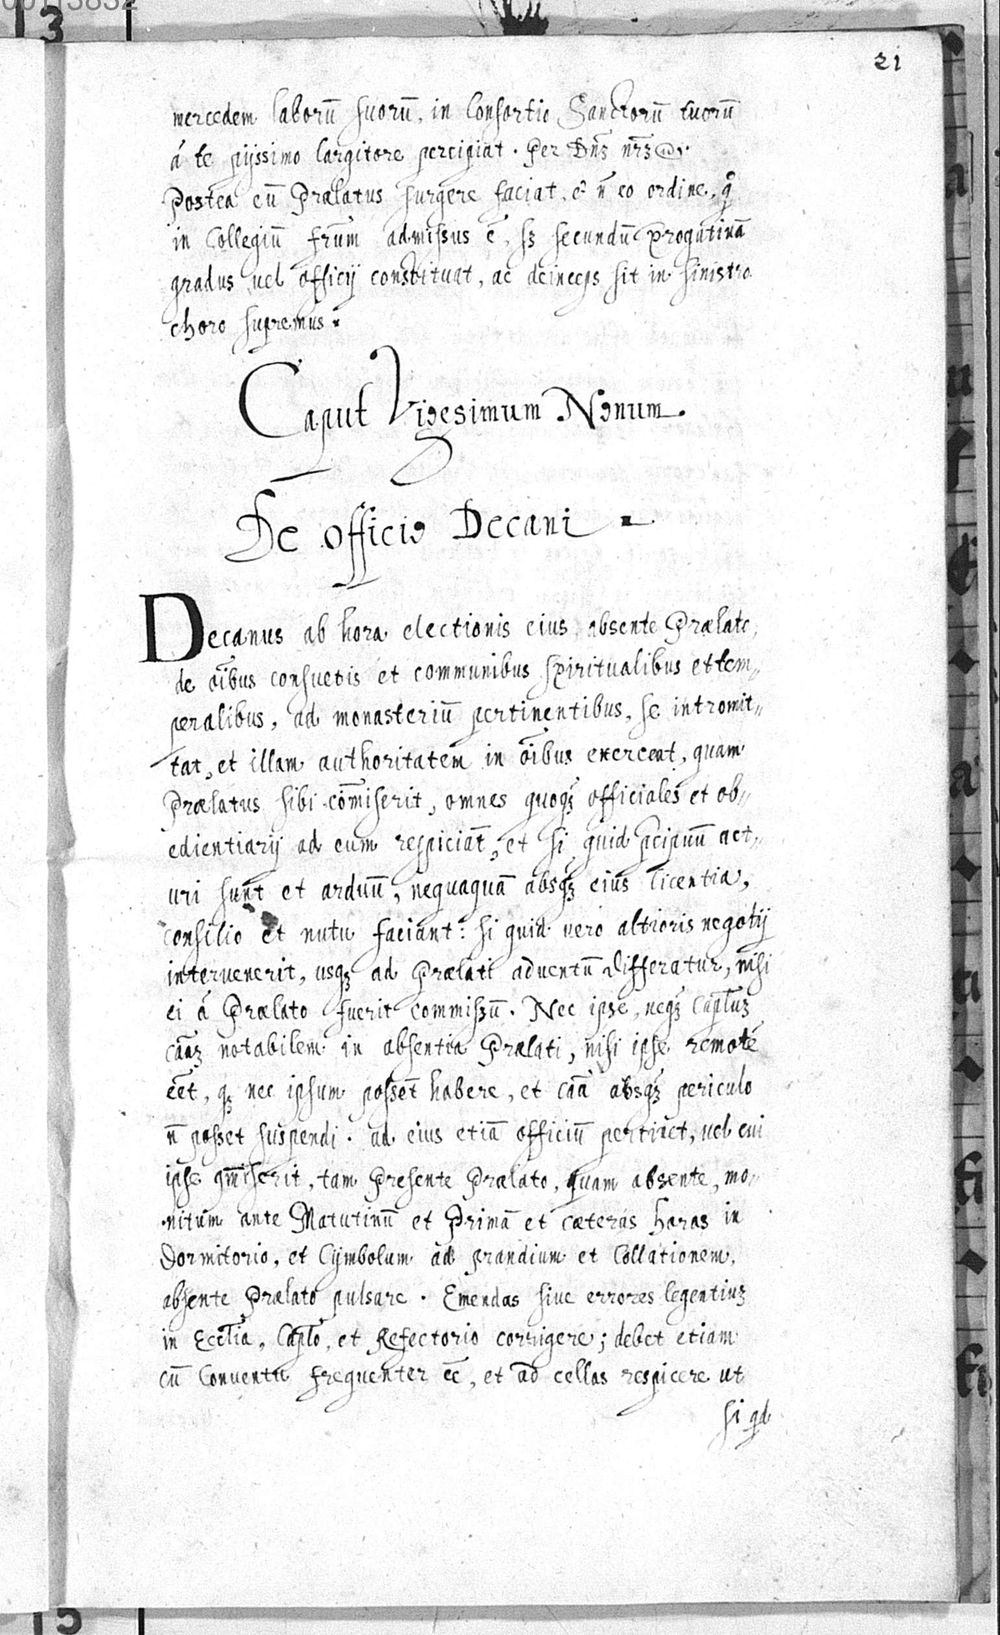 00113832
13
21
mercedem laborū suorū, in Consortio Sanctorū tuorū
á te pijssimo largitore percipiat. Per Dn̄ʒ nr̄ʒ
Postea eū Prælatus surgere faciat, & n̄ eo ordine, q̊
in Collegiū fr̄um admissus ē, sʒ secundū prog̃atiuā
gradus uel officij constituat, ac deinceps sit in sinistro
choro supremus.
Caput Vigesimum Nonum.
De officio Decani
Decanus ab hora electionis eius, absente Prælato,
de oībus consuetis et communibus spiritualibus et tem„
poralibus, ad monasteriū pertinentibus, se intromit„
tat, et illam authoritatem in oībus exerceat, quam
Prælatus sibi com̄iserit, omnes quoqʒ officiales et ob„
edientiarij ad eum respiciāt, et si quid p̄cipuū act„
uri sunt et arduū, nequaquā absqʒ eius licentia,
consilio et nutu faciant: si quid uero altioris negotij
interuenerit, usqʒ ad Prælati aduentū differatur, nisi
ei á Prælato fuerit commissū. Nec ipse, neqʒ Cap̄tuʒ
cāaʒ notabilem in absentia Prælati, nisi ipse remoté
eēt, qʒ nec ipsum possēt habere, et cāa absqʒ periculo
n̄ posset suspendi. ad eius etiā officiū pertinet, uel cui
ipse 9m̄iserit, tam presente Prælato, quam absente, mo„
nitum ante Matutinū et Primā et cæteras horas in
Dormitorio, et Cymbolum ad prandium et Collationem,
absente Prælato pulsare. Emendas siue errores legentiuʒ
in Eccl̄ia, Cap̄lo, et Refectorio corrigere; debet etiam
cū Conuentu frequenter eē, et ad cellas respicere ut
si qd
15